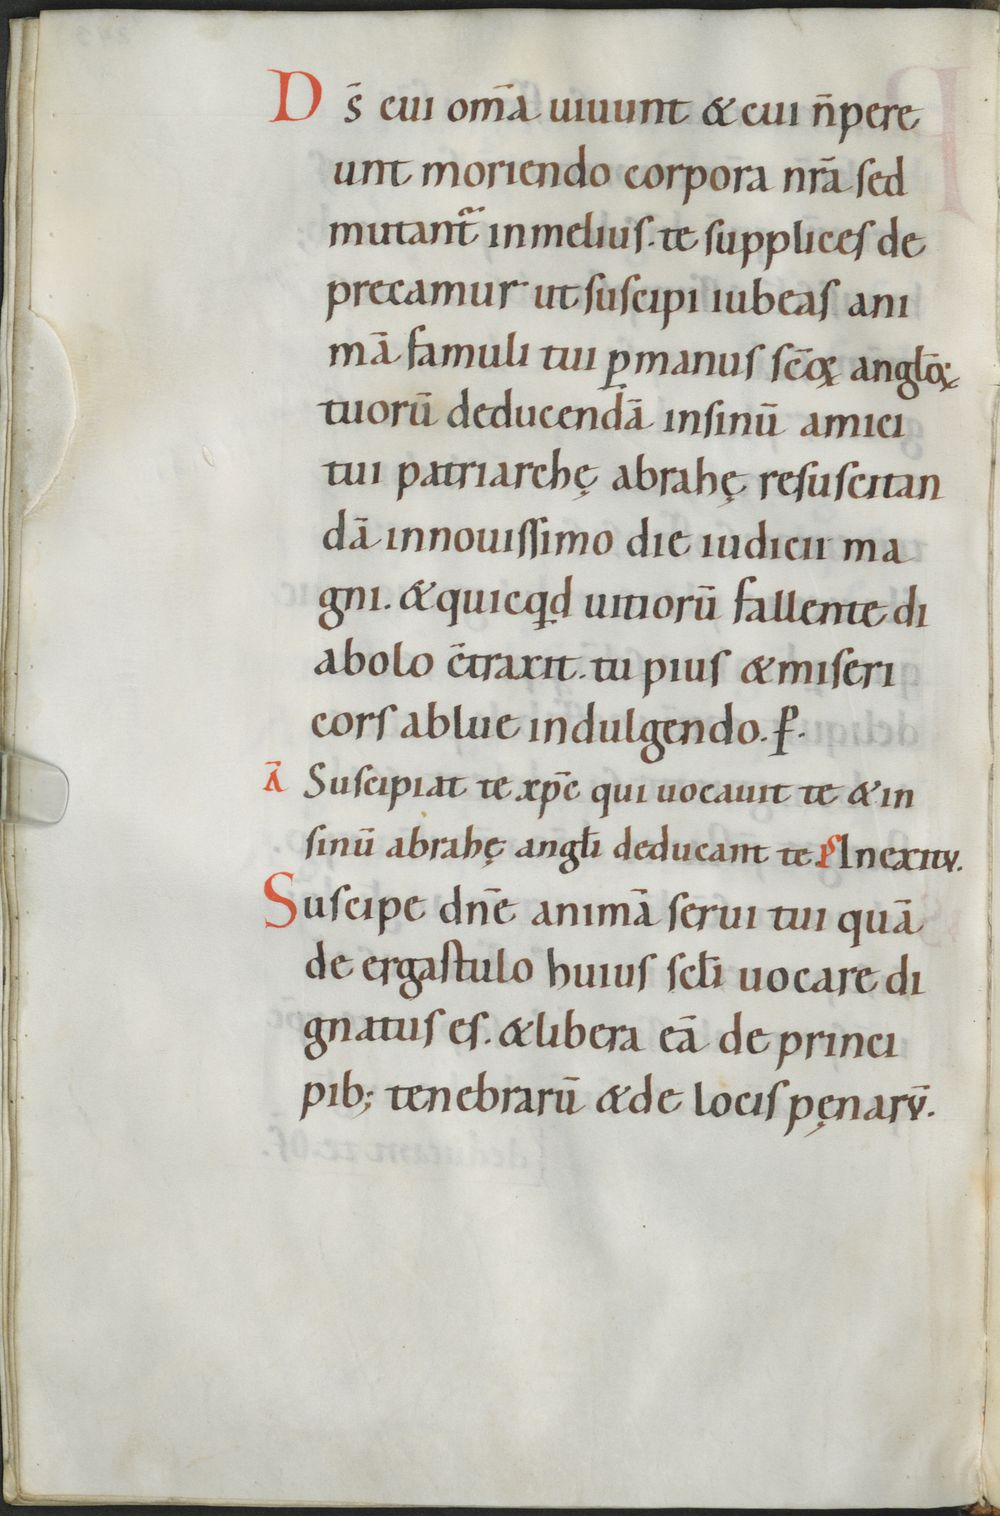 Ds̄ cui om̄a uiuunt & cui n̄ pere
unt moriendo corpora nr̄a sed
mutant̃ in melius. te supplices de
precamur ut suscipi iubeas ani
mā famuli tui ꝑ manus sc̄oꝝ anglōꝝ
tuorū deducendā in sinū amici
tui patriarchę abrahę resuscitan
dā in nouissimo die iudicii ma
gni. & quicq̇d uitiorū fallente di
abolo c̄traxit. tu pius & miseri
cors ablue indulgendo. ꝑ.
ā Suscipiat te xp̄c qui uocauit te & in
sinū abrahę angłi deducant te. P̄s In exitu.
Suscipe dn̄e animā serui tui quā
de ergastulo huius scłi uocare di
gnatus es. & libera eā de princi
pib; tenebrarū & de locis pęnarū.